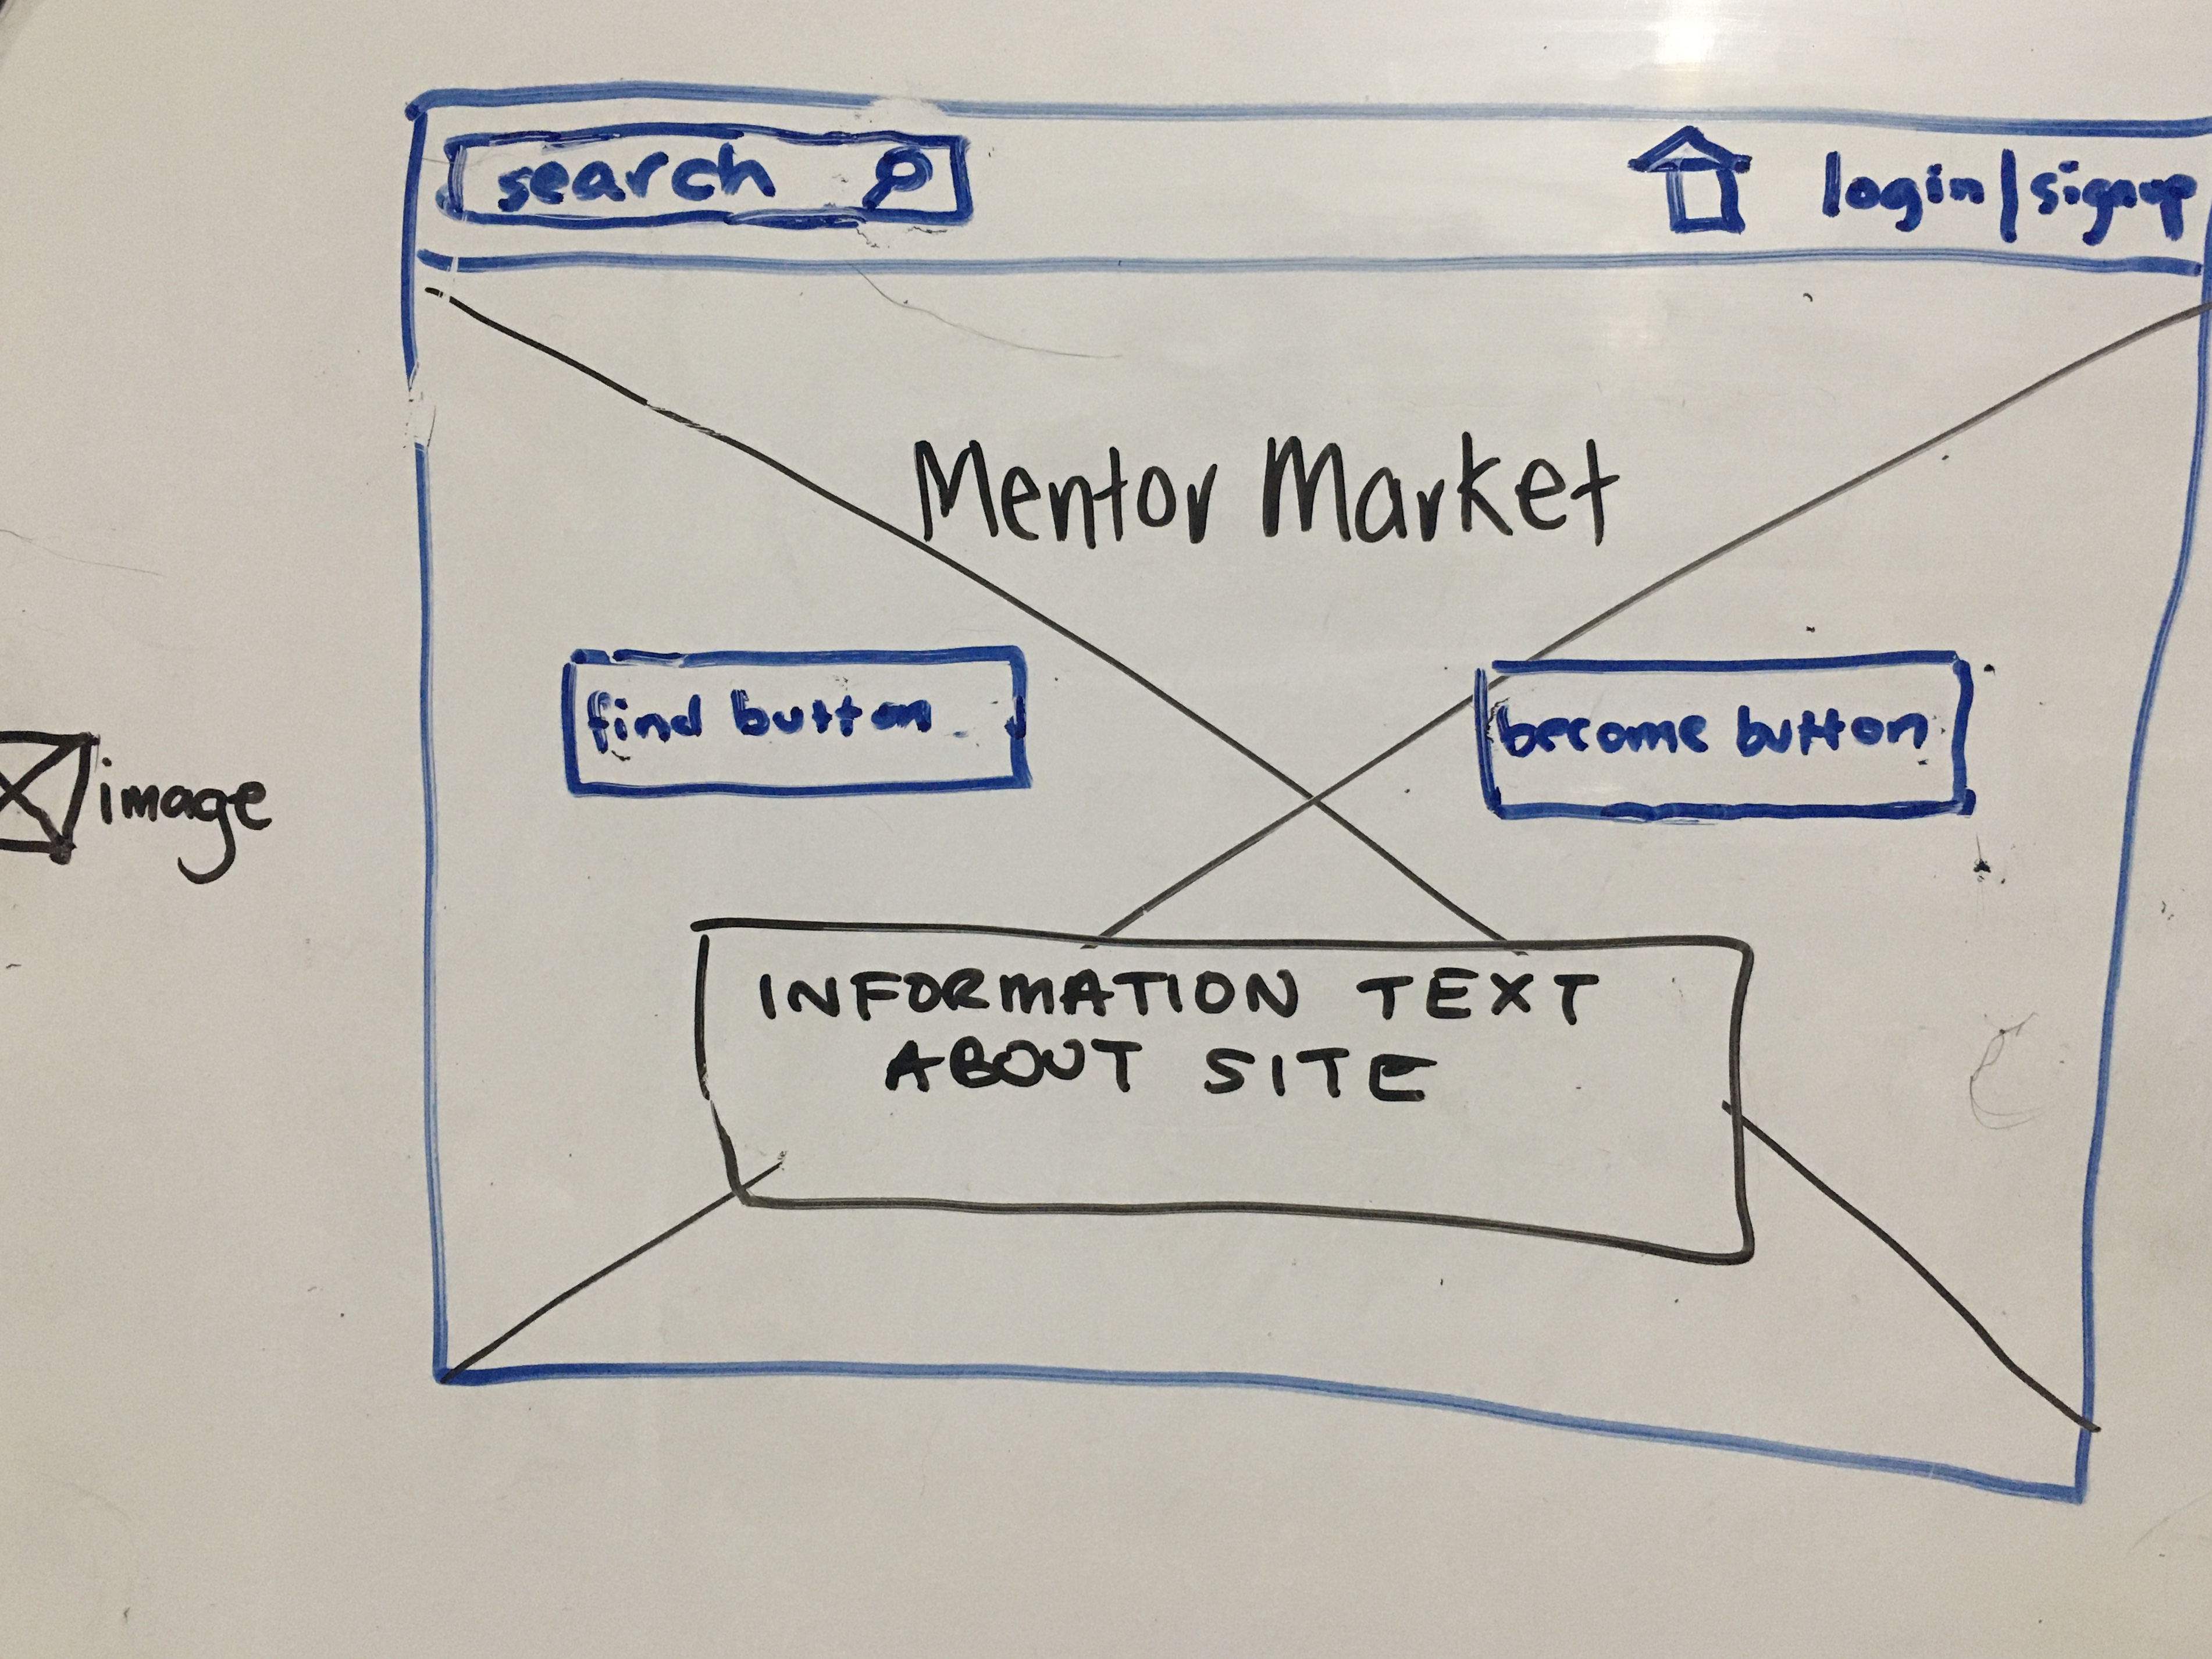 search
login/signup
Mentor Market
find button
become button
image
INFORMATION TEXT
ABOUT SITE